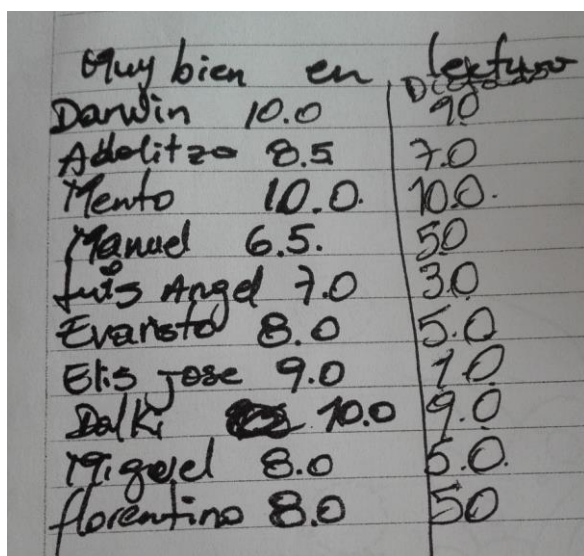 Muy bien en lectura
Dictado
Darwin 10.0 90
Adolitzo 8.5 7.0
Mento 10.0. 10.0.
Manuel 6.5. 50
Luis Angel 7.0 30
Evaristo 8.0 5.0
Elis jose 9.0 10
Dalki 10.0 9.0
Miguel 8.0 5.0.
florentino 8.0 50